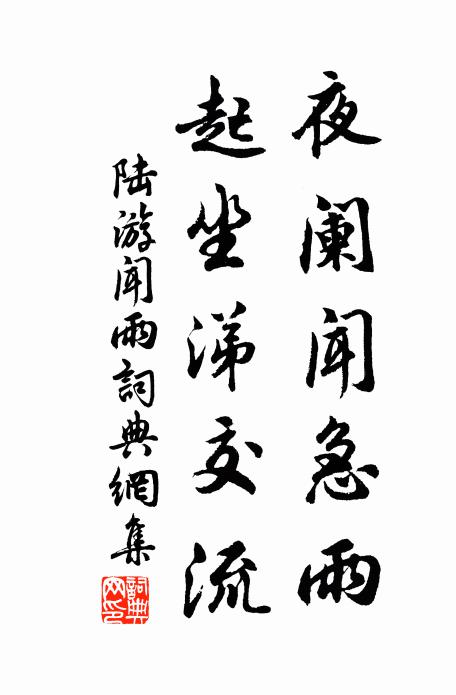 夜阑闻急雨
起坐涕交流
陆游闻雨詞典網集